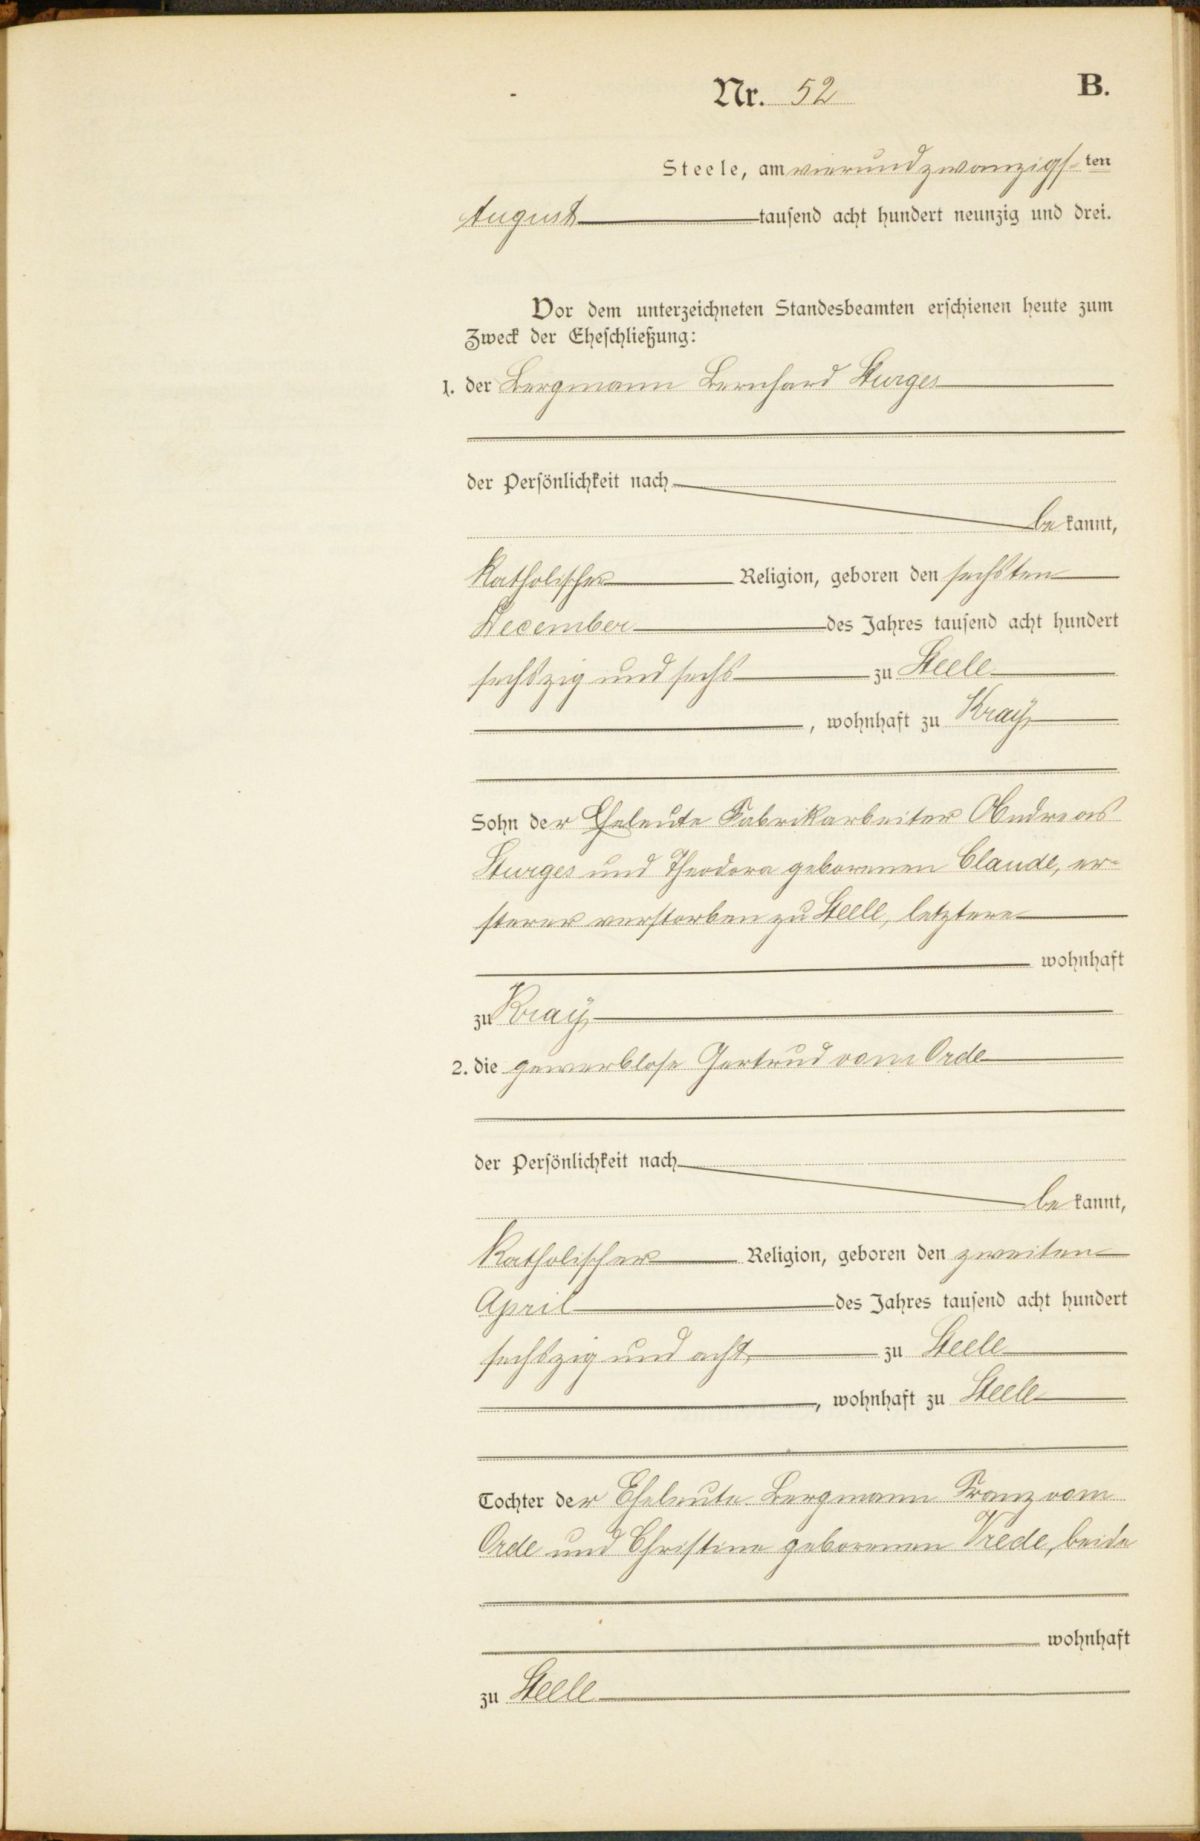 Nr. 52 B.
Steele, am vierundzwanzigsten
August tausend acht hundert neunzig und drei.
Vor dem unterzeichneten Standesbeamten erschienen heute zum
Zweck der Eheschließung:
1. der Bergmann Bernhard Sturges
der Persönlichkeit nach
be kannt,
katholischer Religion, geboren den sechsten
December des Jahres tausend acht hundert
sechszig und sechs zu Steele
, wohnhaft zu Kray
Sohn der Eheleute Fabrikarbeiter Andreas
Sturges und Theodora geborenen Claude, er-
sterer verstorben zu Steele, letztere
wohnhaft
zu Kray
2. die gewerblose Gertrud vom Orde
der Persönlichkeit nach
be kannt,
katholischer Religion, geboren den zweiten
April des Jahres tausend acht hundert
sechszig und acht zu Steele
, wohnhaft zu Steele
Tochter der Eheleute Bergmann Franz vom
Orde und Christine geborenen Vrede, beide
wohnhaft
zu Steele